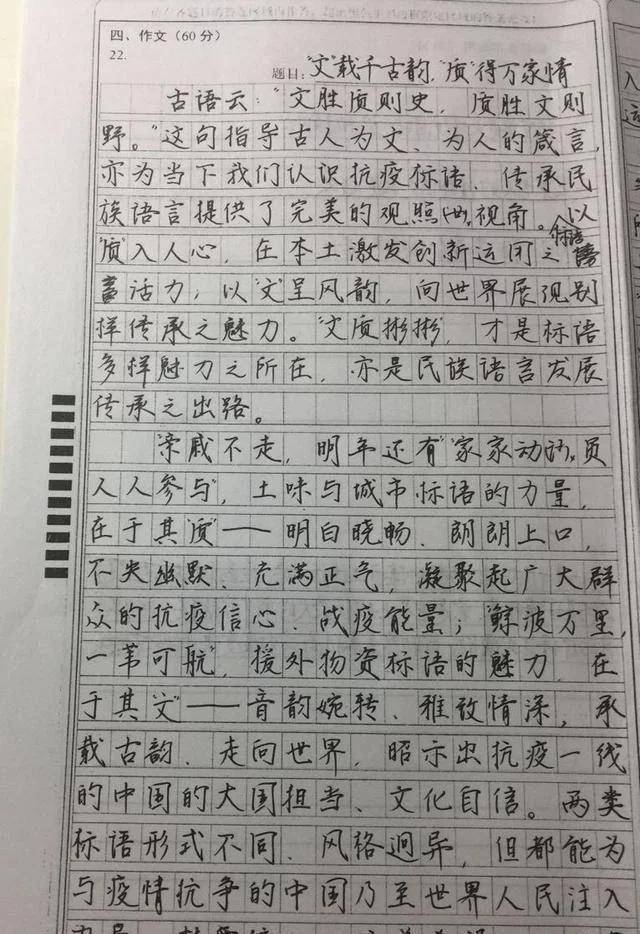 四、作文(60分)
22.
题目:"文"载千古韵 "质"得万家情
古语云:"文胜质则史,质胜文则
野。"这句指导古人为文、为人的箴言,
亦为当下我们认识抗疫标语、传承民
族语言提供了完美的观照视角。以
"质"入人心,在本土激发创新运用之标语
活力;以"文"呈风韵,向世界展现别
样传承之魅力。"文质彬彬",才是标语
多样魅力之所在,亦是民族语言发展
传承之出路。
"亲戚不走,明年还有""家家动员
人人参与",土味与城市标语的力量,
在于其"质"——明白晓畅、朗朗上口,
不失幽默、充满正气,凝聚起广大群
众的抗疫信心、战疫能量;"鲸波万里,
一苇可航",援外物资标语的魅力,在
于其"文"——音韵婉转、雅致情深,承
载古韵、走向世界,昭示出抗疫一线
的中国的大国担当、文化自信。两类
标语形式不同、风格迥异,但都能为
与疫情抗争的中国乃至世界人民注入
入